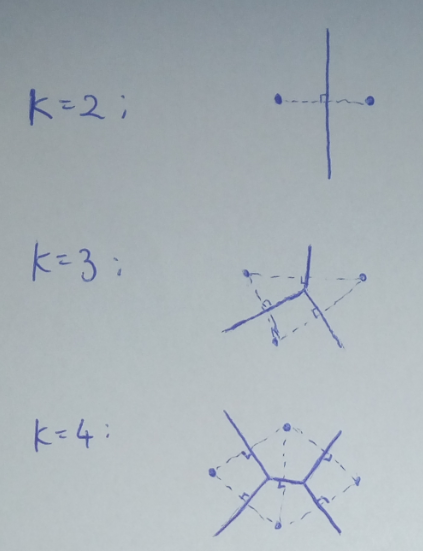 K=2;
K=3;
K=4: